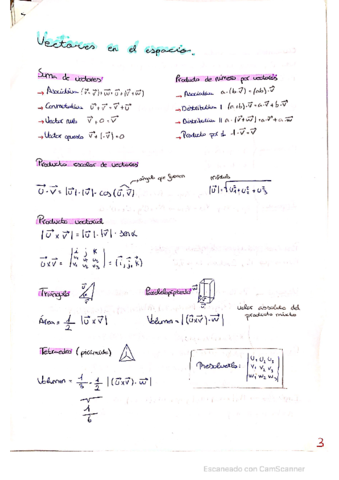 Vectores en el espacio.
Suma de vectores:
→ Asociativa (u⃗+v⃗)+w⃗ = u⃗+(v⃗+w⃗)
→ Conmutativa u⃗+v⃗ = v⃗+u⃗
→ Vector nulo
→ Vector opuesto
Producto de número por vectores
→ Asociativa a·(b·v⃗) = (ab)·v⃗
→ Distributiva I (a+b)·v⃗ = a·v⃗+b·v⃗
→ Distributiva II
→ Producto por 1 1·v⃗ = v⃗
Producto escalar de vectores
ángulo que forman
u⃗·v⃗ = |u⃗|·|v⃗|·cos(u⃗,v⃗)
módulo
Producto vectorial
|u⃗×v⃗| = |u⃗|·|v⃗|·senα
u⃗×v⃗ = | i j k | = (i⃗, j⃗, k⃗)
Triángulo
Área = 1/2 |u⃗×v⃗|
Paralelepípedo
Volumen = |(u⃗×v⃗)·w⃗|
valor absoluto del
producto mixto
Tetraedro
Volumen = 1/3 · 1/2 |(u⃗×v⃗)·w⃗|
1/6
3
Escaneado con CamScanner